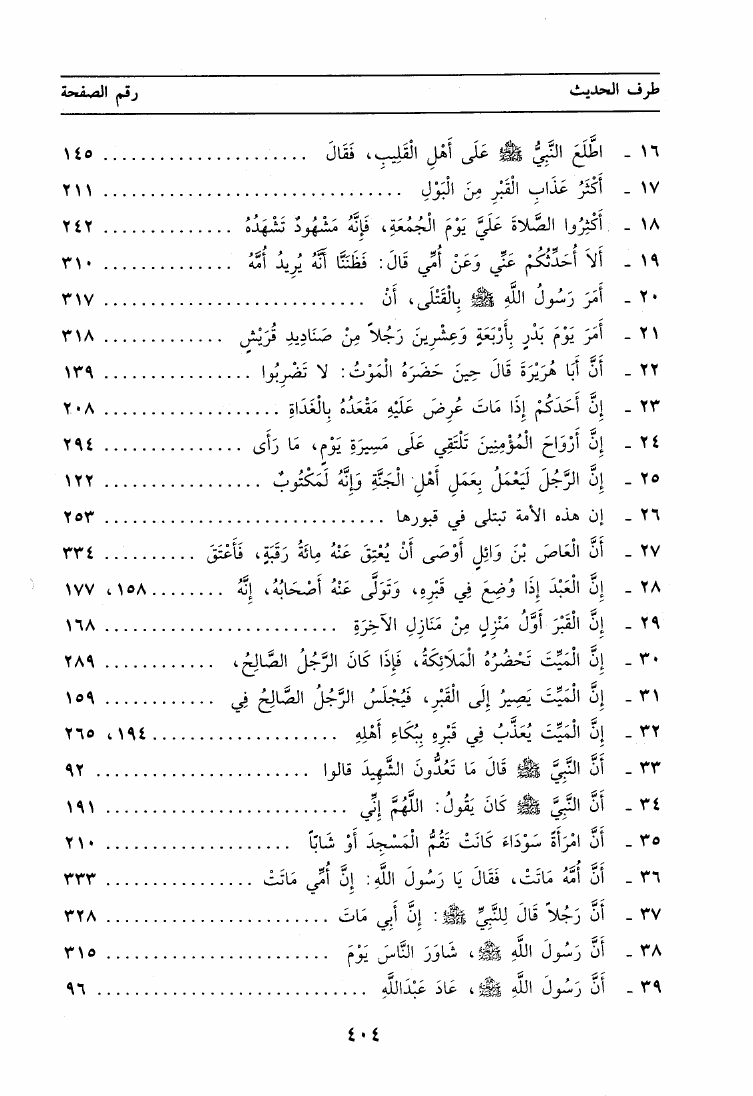 طرف الحديث رقم الصفحة
١٦ ـ اطَّلَعَ النَّبِيُّ ﷺ عَلَى أَهْلِ الْقَلِيبِ، فَقَالَ ...................... ١٤٥
١٧ ـ أَكْثَرُ عَذَابِ الْقَبْرِ مِنَ الْبَوْلِ ................................ ٢١١
١٨ ـ أَكْثِرُوا الصَّلاَةَ عَلَيَّ يَوْمَ الْجُمُعَةِ، فَإِنَّهُ مَشْهُودٌ تَشْهَدُهُ .............. ٢٤٢
١٩ ـ أَلاَ أُحَدِّثُكُمْ عَنِّي وَعَنْ أُمِّي قَالَ: فَظَنَنَّا أَنَّهُ يُرِيدُ أُمَّهُ .............. ٣١٠
٢٠ ـ أَمَرَ رَسُولُ اللَّهِ ﷺ بِالْقَتْلَى، أَنْ ............................ ٣١٧
٢١ ـ أَمَرَ يَوْمَ بَدْرٍ بِأَرْبَعَةٍ وَعِشْرِينَ رَجُلاً مِنْ صَنَادِيدِ قُرَيْشٍ ............. ٣١٨
٢٢ ـ أَنَّ أَبَا هُرَيْرَةَ قَالَ حِينَ حَضَرَهُ الْمَوْتُ: لا تَضْرِبُوا ................ ١٣٩
٢٣ ـ إِنَّ أَحَدَكُمْ إِذَا مَاتَ عُرِضَ عَلَيْهِ مَقْعَدُهُ بِالْغَدَاةِ ................... ٢٠٨
٢٤ ـ إِنَّ أَرْوَاحَ الْمُؤْمِنِينَ تَلْتَقِي عَلَى مَسِيرَةِ يَوْمٍ، مَا رَأَى ............... ٢٩٤
٢٥ ـ إِنَّ الرَّجُلَ لَيَعْمَلُ بِعَمَلِ أَهْلِ الْجَنَّةِ وَإِنَّهُ لَمَكْتُوبٌ ................. ١٢٢
٢٦ ـ إن هذه الأمة تبتلى في قبورها .............................. ٢٥٣
٢٧ ـ أَنَّ الْعَاصَ بْنَ وَائِلٍ أَوْصَى أَنْ يُعْتِقَ عَنْهُ مِائَةُ رَقَبَةٍ، فَأَعْتَقَ .......... ٣٣٤
٢٨ ـ إِنَّ الْعَبْدَ إِذَا وُضِعَ فِي قَبْرِهِ، وَتَوَلَّى عَنْهُ أَصْحَابُهُ، إِنَّهُ ........ ١٥٨، ١٧٧
٢٩ ـ إِنَّ الْقَبْرَ أَوَّلُ مَنْزِلٍ مِنْ مَنَازِلِ الآخِرَةِ ......................... ١٦٨
٣٠ ـ إِنَّ الْمَيِّتَ تَحْضُرُهُ الْمَلاَئِكَةُ، فَإِذَا كَانَ الرَّجُلُ الصَّالِحُ، ............ ٢٨٩
٣١ ـ إِنَّ الْمَيِّتَ يَصِيرُ إِلَى الْقَبْرِ، فَيُجْلَسُ الرَّجُلُ الصَّالِحُ فِي ............ ١٥٩
٣٢ ـ إِنَّ الْمَيِّتَ يُعَذَّبُ فِي قَبْرِهِ بِبُكَاءِ أَهْلِهِ .................... ١٩٤، ٢٦٥
٣٣ ـ أَنَّ النَّبِيَّ ﷺ قَالَ مَا تَعُدُّونَ الشَّهِيدَ قالوا ....................... ٩٢
٣٤ ـ أَنَّ النَّبِيَّ ﷺ كَانَ يَقُولُ: اللَّهُمَّ إِنِّي .......................... ١٩١
٣٥ ـ أَنَّ امْرَأَةً سَوْدَاءَ كَانَتْ تَقُمُّ الْمَسْجِدَ أَوْ شَابّاً .................... ٢١٠
٣٦ ـ أَنَّ أُمَّهُ مَاتَتْ، فَقَالَ يَا رَسُولَ اللَّهِ: إِنَّ أُمِّي مَاتَتْ ................ ٣٣٣
٣٧ ـ أَنَّ رَجُلاً قَالَ لِلنَّبِيِّ ﷺ: إِنَّ أَبِي مَاتَ ........................ ٣٢٨
٣٨ ـ أَنَّ رَسُولَ اللَّهِ ﷺ، شَاوَرَ النَّاسَ يَوْمَ ........................ ٣١٥
٣٩ ـ أَنَّ رَسُولَ اللَّهِ ﷺ، عَادَ عَبْدَاللَّهِ ............................. ٩٦
٤٠٤